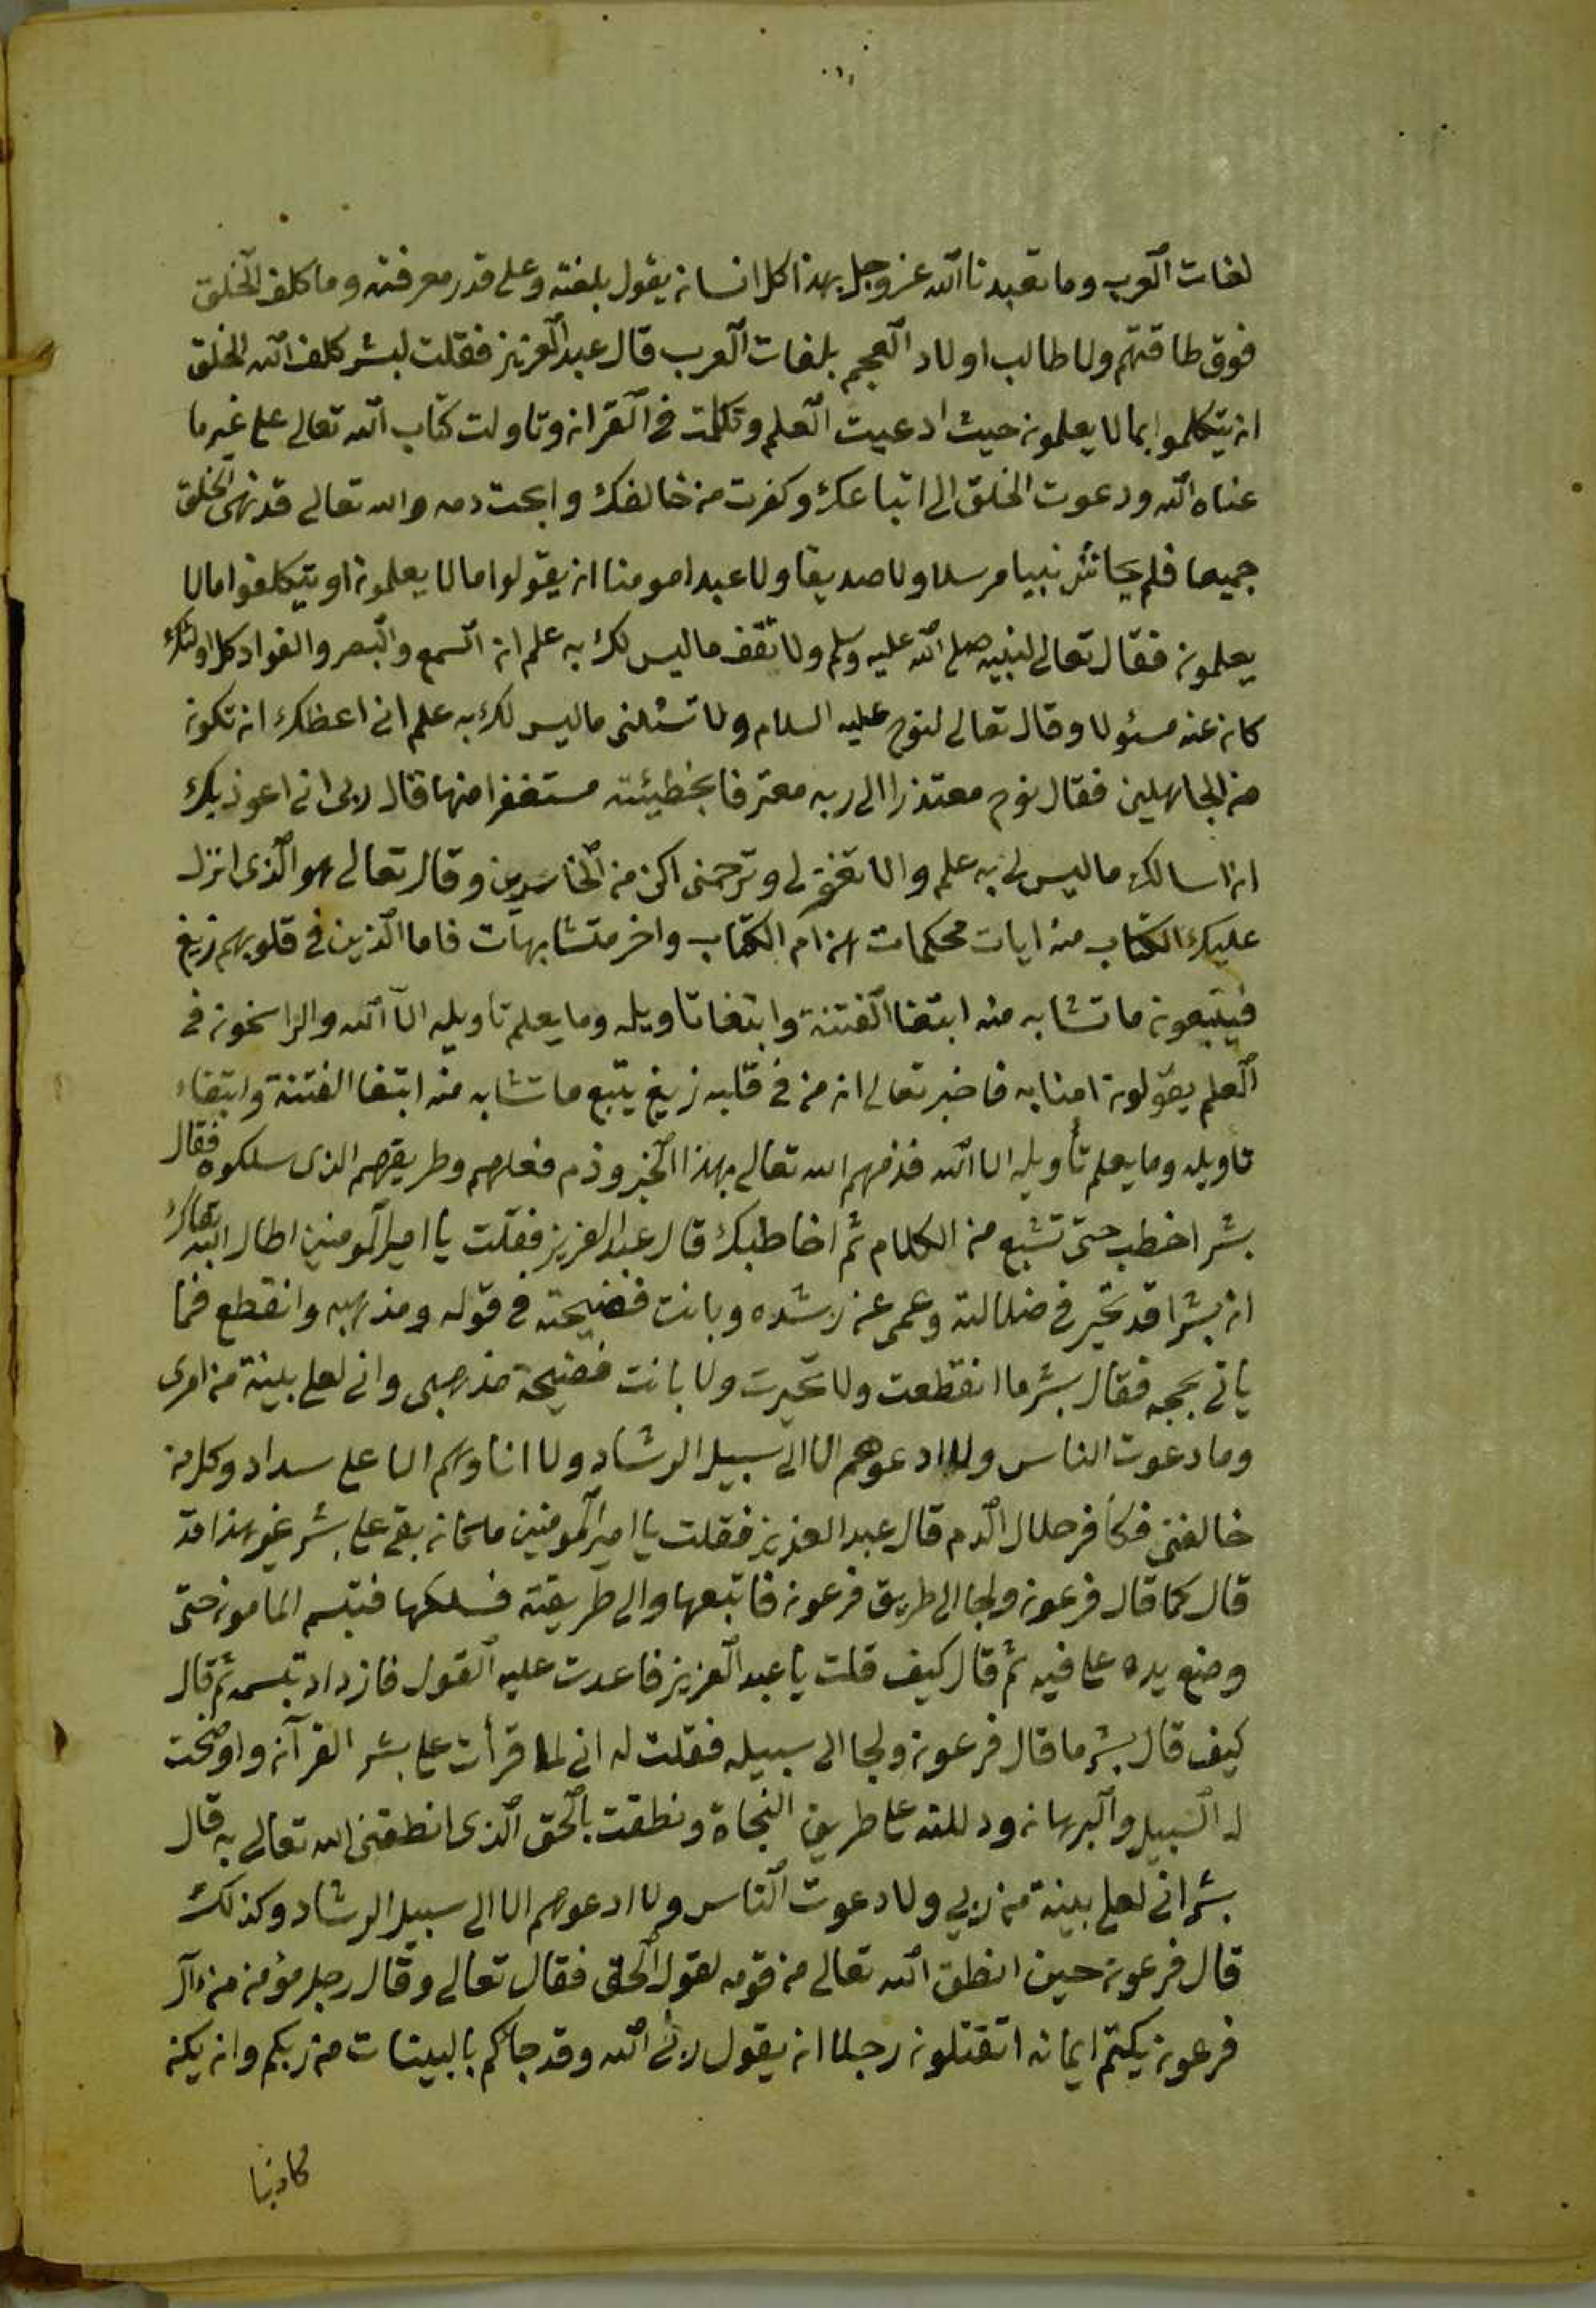 لغات العرب وما تعبدنا الله عز وجل بهذا كل انسان يقول بلغته وعلى قدر معرفته وما كلف الخلق
فوق طاقتهم ولا طالب اولاد العجم بلغات العرب قال عبد العزيز فقلت لبشر كلف الله الخلق
ان يتكلموا بما لا يعلمون حيث ادعيت العلم وتكلمت في القران وتاولت كتاب الله تعالى على غير ما
عناه الله ودعوت الخلق الى اتباعك وكفرت من خالفك وابحت دمه والله تعالى قد نهى الخلق
جميعا فلم يحاش نبيا مرسلا ولا صديقا ولا عبدا مومنا ان يقولوا ما لا يعلمون او يتكلفوا ما لا
يعلمون فقال تعالى لنبيه صلى الله عليه وسلم ولا تقف ما ليس لك به علم ان السمع والبصر والفواد كل اولئك
كان عنه مسئولا وقال تعالى لنوح عليه السلام ولا تسئلنى ما ليس لك به علم انى اعظك ان تكون
من الجاهلين فقال نوح معتذرا الى ربه معترفا بخطيئته مستغفرا منها قال ربى انى اعوذ بك
ان اسالك ما ليس لى به علم والا تغفر لى وترحمنى اكن من الخاسرين وقال تعالى هو الذى انزل
عليك الكتاب منه ايات محكمات هن ام الكتاب واخر متشابهات فاما الذين فى قلوبهم زيغ
فيتبعون ما تشابه منه ابتغا الفتنة وابتغا تاويله وما يعلم تاويله الا الله والراسخون فى
العلم يقولون امنا به فاخبر تعالى ان من فى قلبه زيغ يتبع ما تشابه منه ابتغا الفتنة وابتغاء
تاويله وما يعلم تأويله الا الله فذمهم الله تعالى بهذا الخبر وذم فعلهم وطريقهم الذى سلكوه فقال
بشر اخطب حتى تشبع من الكلام ثم اخاطبك قال عبد العزيز فقلت يا امير المومنين اطال الله بقاك
ان بشرا قد تحير فى ضلالته وعمى عن رشده وبانت فضيحته فى قوله ومذهبه وانقطع فما
ياتى بحجه فقال بشر ما انقطعت ولا تحيرت ولا بانت فضيحة مذهبى وانى لعلى بينة من امرى
وما دعوت الناس ولا ادعوهم الا الى سبيل الرشاد ولا انا وهم الا على سداد وكل من
خالفنى فكافر حلال الدم قال عبد العزيز فقلت يا امير المومنين ما كان بقى على بشر غير هذا قد
قال كما قال فرعون ولجا الى طريق فرعون فاتبعها والى طريقته فسلكها فتبسم المامون حتى
وضع يده على فيه ثم قال كيف قلت يا عبد العزيز فاعدت عليه القول فازداد تبسمه ثم قال
كيف قال بشر ما قال فرعون ولجا الى سبيله فقلت له انى لما قرأت على بشر القرآن واوضحت
له السبيل والبرهان ودللته على طريق النجاة ونطقت بالحق الذى انطقنى الله تعالى به قال
بشر انى لعلى بينة من ربي ولا دعوت الناس ولا ادعوهم الا الى سبيل الرشاد وكذلك
قال فرعون حين انطق الله تعالى من قومه لقول الحق فقال تعالى وقال رجل مؤمن من آل
فرعون يكتم ايمانه اتقتلون رجلا ان يقول ربى الله وقد جائكم بالبينات من ربكم وان يكن
كاذبا